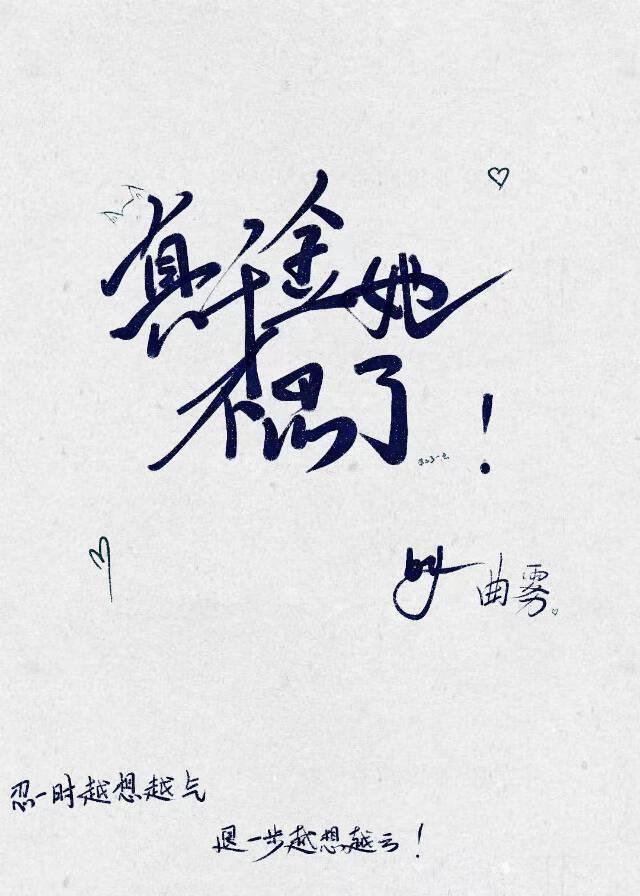 真千金她
不忍了!
by 曲雾
忍一时越想越气
退一步越想越亏!